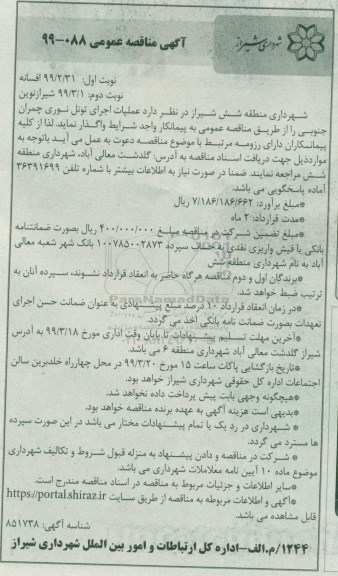 شهرداری شیراز
آگهی مناقصه عمومی ۰۸۸-۹۹
نوبت اول: ۹۹/۲/۳۱ افسانه
نوبت دوم: ۹۹/۳/۱ شیرازنوین
شهرداری منطقه شش شیراز در نظر دارد عملیات اجرای تونل نوری چمران
جنوبی را از طریق مناقصه عمومی به پیمانکار واجد شرایط واگذار نماید. لذا از کلیه
پیمانکاران دارای رزومه مرتبط با موضوع مناقصه دعوت به عمل می آید باتوجه به
مواردذیل جهت دریافت اسناد مناقصه به آدرس: گلدشت معالی آباد، شهرداری منطقه
شش مراجعه نمایند. ضمنا در صورت نیاز به اطلاعات بیشتر با شماره تلفن ۳۶۳۹۱۶۹۹
آماده پاسخگویی می باشد.
*مبلغ برآورد: ۷/۱۸۶/۱۸۶/۶۶۲ ریال
*مدت قرارداد: ۲ ماه
*مبلغ تضمین شرکت در مناقصه مبلغ ۴۰۰/۰۰۰/۰۰۰ ریال بصورت ضمانتنامه
بانکی یا فیش واریزی نقدی به حساب سپرده ۱۰۰۷۸۵۰۰۲۸۷۳ بانک شهر شعبه معالی
آباد به نام شهرداری منطقه شش
*برندگان اول و دوم مناقصه هرگاه حاضر به انعقاد قرارداد نشوند، سپرده آنان به
ترتیب ضبط خواهد شد.
*در زمان انعقاد قرارداد ۱۰ درصد مبلغ پیشنهادی به عنوان ضمانت حسن اجرای
تعهدات بصورت ضمانت نامه بانکی اخذ می گردد.
*آخرین مهلت تسلیم پیشنهادات تا پایان وقت اداری مورخ ۹۹/۳/۱۸ به آدرس
شیراز گلدشت معالی آباد شهرداری منطقه ۶ می باشد.
*تاریخ بازگشایی پاکات ساعت ۱۵ مورخ ۹۹/۳/۲۰ در محل چهارراه خلدبرین سالن
اجتماعات اداره کل حقوقی شهرداری شیراز خواهد بود.
*هیچگونه وجهی بابت پیش پرداخت داده نخواهد شد.
*بدیهی است هزینه آگهی به عهده برنده مناقصه خواهد بود.
*شهرداری در رد یک یا تمام پیشنهادات مختار می باشد در این صورت سپرده
ها مسترد می گردد.
*شرکت در مناقصه و دادن پیشنهاد به منزله قبول شروط و تکالیف شهرداری
موضوع ماده ۱۰ آیین نامه معاملات شهرداری می باشد.
*سایر اطلاعات و جزئیات مربوط به مناقصه در اسناد مناقصه مندرج است.
*آگهی و اطلاعات مربوطه به مناقصه از طریق سایت https://portal.shiraz.ir
قابل مشاهده می باشد.
شناسه آگهی: ۸۵۱۷۳۸
۱۲۴۴/م.الف-اداره کل ارتباطات و امور بین الملل شهرداری شیراز